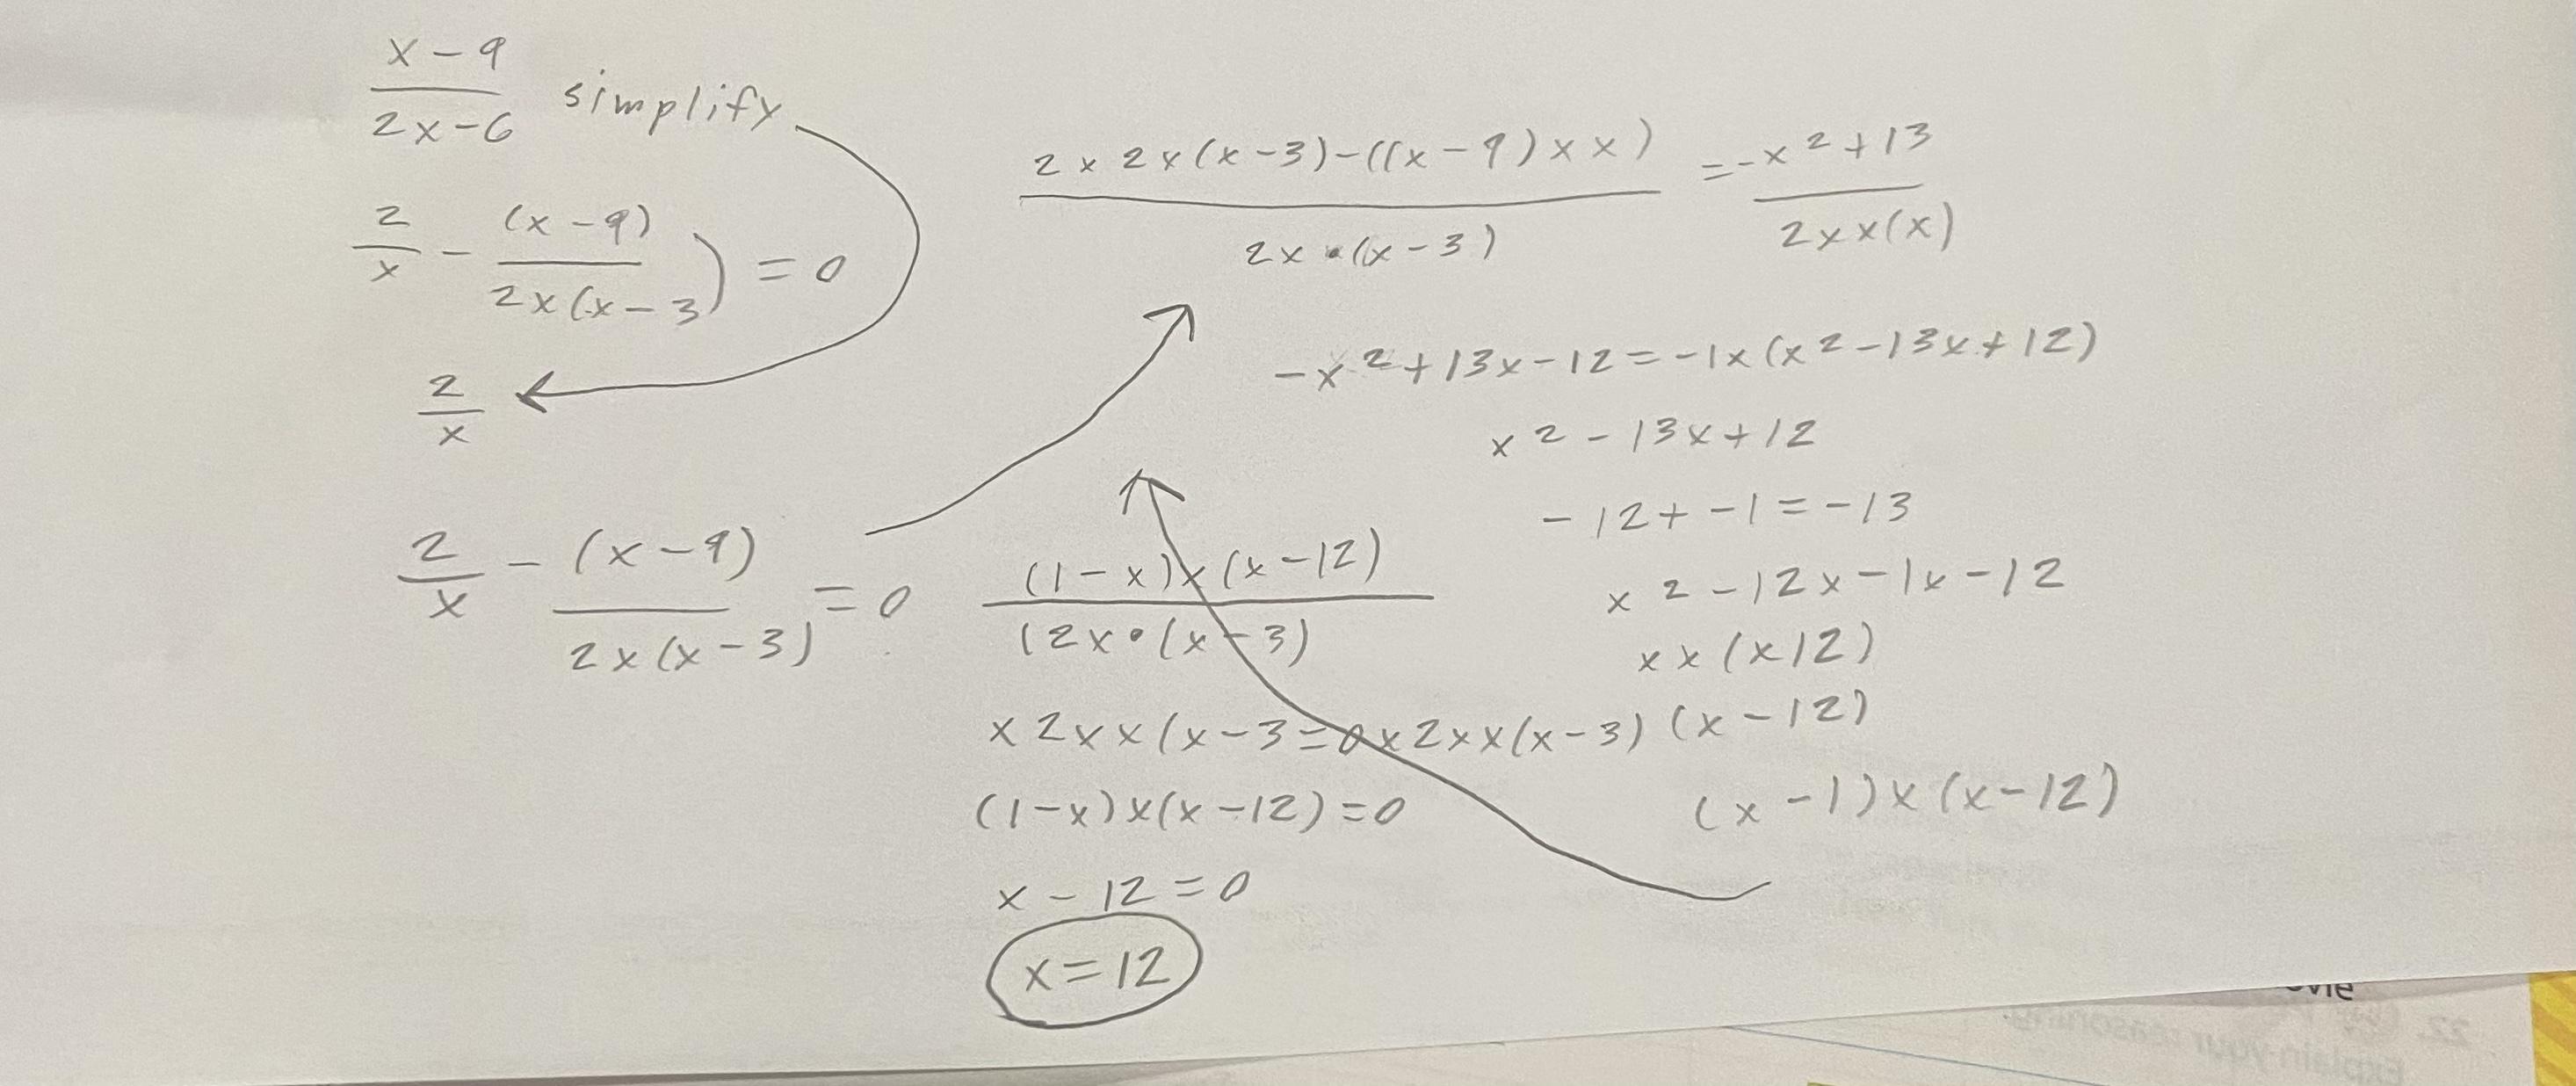 x - 9
2x - 6
simplify
2/x - (x - 9)/2x(x - 3) = 0
2/x
2/x - (x - 9)/2x(x - 3) = 0
2 x 2x(x - 3) - ((x - 9) x x)/2x • (x - 3) = -x2 + 13/2 x x(x)
-x2 + 13x - 12 = -1x(x2 - 13x + 12)
x2 - 13x + 12
-12 + -1 = -13
x2 - 12x - 1x - 12
x x (x12)
(x - 12)
(x - 1) x (x - 12)
(1 - x) x (x - 12)/(2x • (x - 3)
x 2 x x (x - 3 = 0 x 2 x x (x - 3)
(1 - x) x (x - 12) = 0
x - 12 = 0
x = 12
22.
Explain your reasoning.